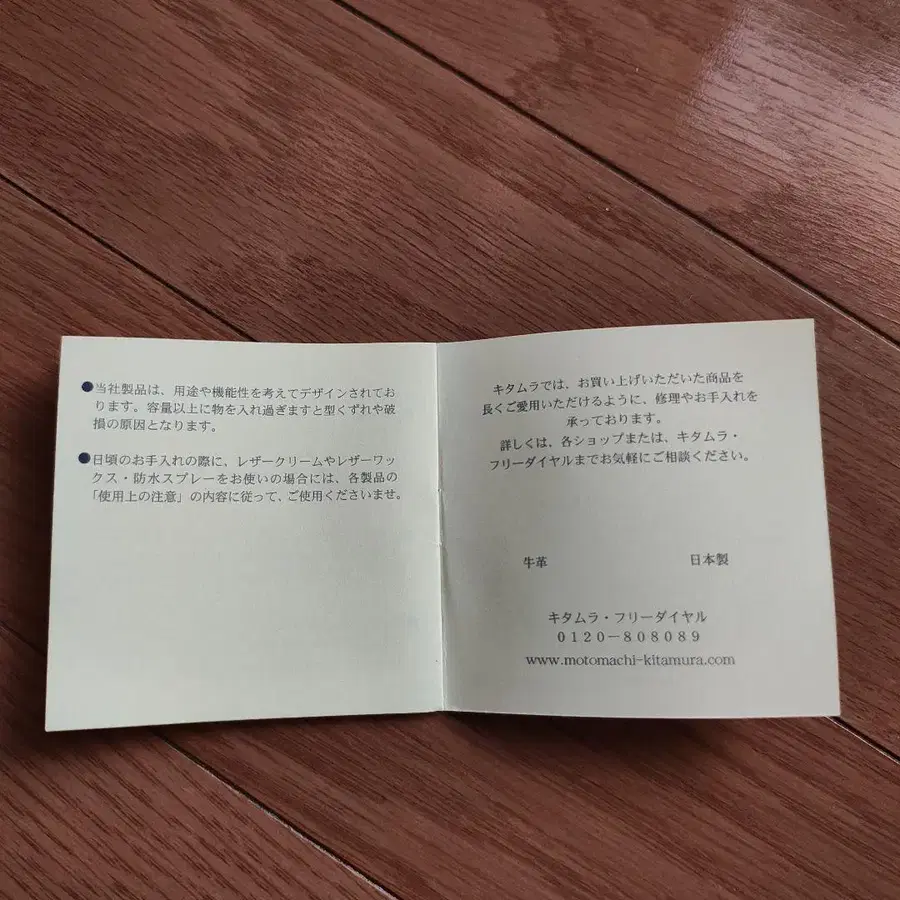 ●当社製品は、用途や機能性を考えてデザインされてお
ります。容量以上に物を入れ過ぎますと型くずれや破
損の原因となります。
●日頃のお手入れの際に、レザークリームやレザーワッ
クス・防水スプレーをお使いの場合には、各製品の
「使用上の注意」の内容に従って、ご使用くださいませ。
キタムラでは、お買い上げいただいた商品を
長くご愛用いただけるように、修理やお手入れを
承っております。
詳しくは、各ショップまたは、キタムラ・
フリーダイヤルまでお気軽にご相談ください。
牛革 日本製
キタムラ・フリーダイヤル
0120−808089
www.motomachi-kitamura.com